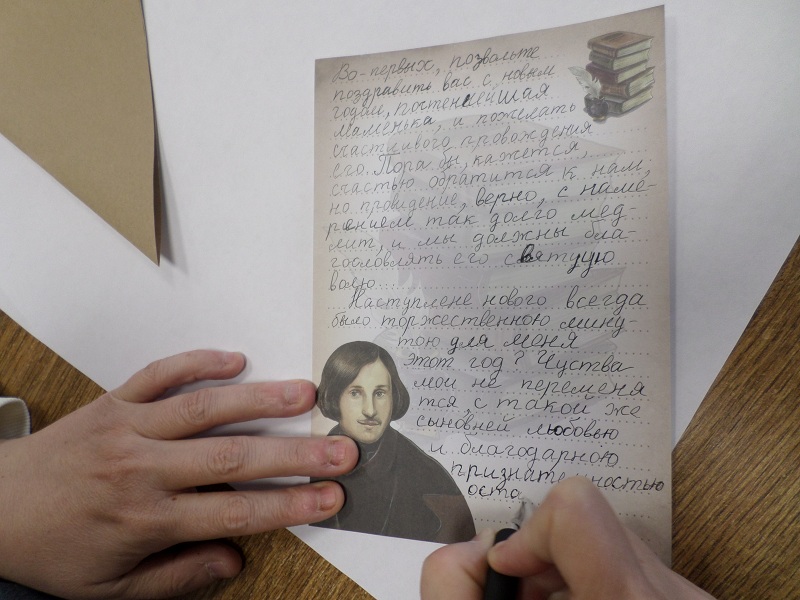 Во-первых, позвольте
поздравить вас с новым
годом, почтеннейшая
маменька, и пожелать
счастливого провождения
его. Пора бы, кажется,
счастью обратится к нам,
но провидение, верно, с наме-
рением так долго мед-
лит, и мы должны бла-
гословлять его святую
волю.
Наступлене нового всегда
было торжественною мину-
тою для меня
этот год? Чуства
мои не переменя
тся с такой же
сыновней любовью
и благодарною
признательностью
оста